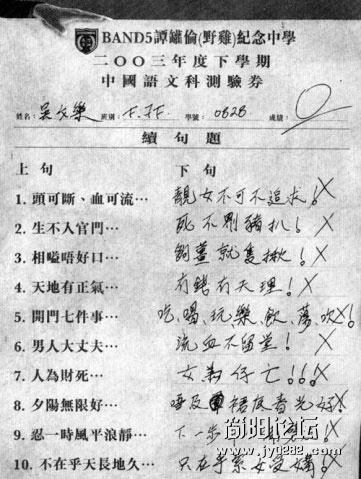 BAND5譚罐倫(野雞)紀念中學
二○○三年度下學期
中國語文科測驗券
姓名: 吳文樂 班別: F.7F. 學號: 0828 成績: 0
續句題
上句 下句
1. 頭可斷、血可流… 靚女不可不追求!
2. 生不入官門… 死不剔豬扒!
3. 相嗌唔好口… 夠薑就隻揪!
4. 天地有正氣… 冇錢冇天理!
5. 開門七件事… 吃、喝、玩、樂、飲、蕩、吹!
6. 男人大丈夫… 流血不留堂!
7. 人為財死… 女為仔亡!!!
8. 夕陽無限好… 裙底春光好!
9. 忍一時風平浪靜… 下一步
10. 不在乎天長地久… 只在乎索女受媾!
简阳论坛
www.jy028.com